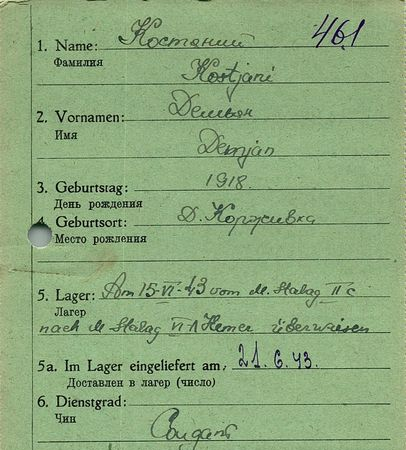 1. Name: Костяний 461
Фамилия
Kostjani
2. Vornamen: Демьян
Имя
Demjan
3. Geburtstag: 1918.
День рождения
4. Geburtsort: Д. Корживка
Место рождения
5. Lager: Am 15-VI-43 vom M. Stalag II c
Лагер
nach M Stalag VI A Hemer überwiesen
5a. Im Lager eingeliefert am, 21.6.43.
Доставлен в лагер (число)
6. Dienstgrad:
Чин
Солдат